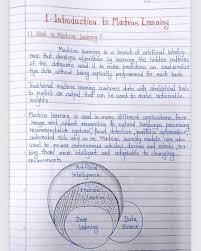 1. Introduction to Machine Learning
1.1 What is Machine Learning?
Machine learning is a branch of artificial intellige-
nce that develops algorithms by learning the hidden patterns
of the datasets used it to make predictions on new similar
type data, without being explicitly programmed for each task.
Traditional machine learning combines data with statistical tools
to predict an output that can be used to make actionable
insights.
Machine learning is used in many different applications, from
image and speech recognition to natural language processing,
recommendation systems, fraud detection, portfolio optimization,
automated task and so on. Machine learning models are also
used to power autonomous vehicles, drones and robots, mak-
ing them more intelligent and adaptable to changing
environments.
Artificial
Intelligence
Machine
Learning
Deep
Learning
Data
Science